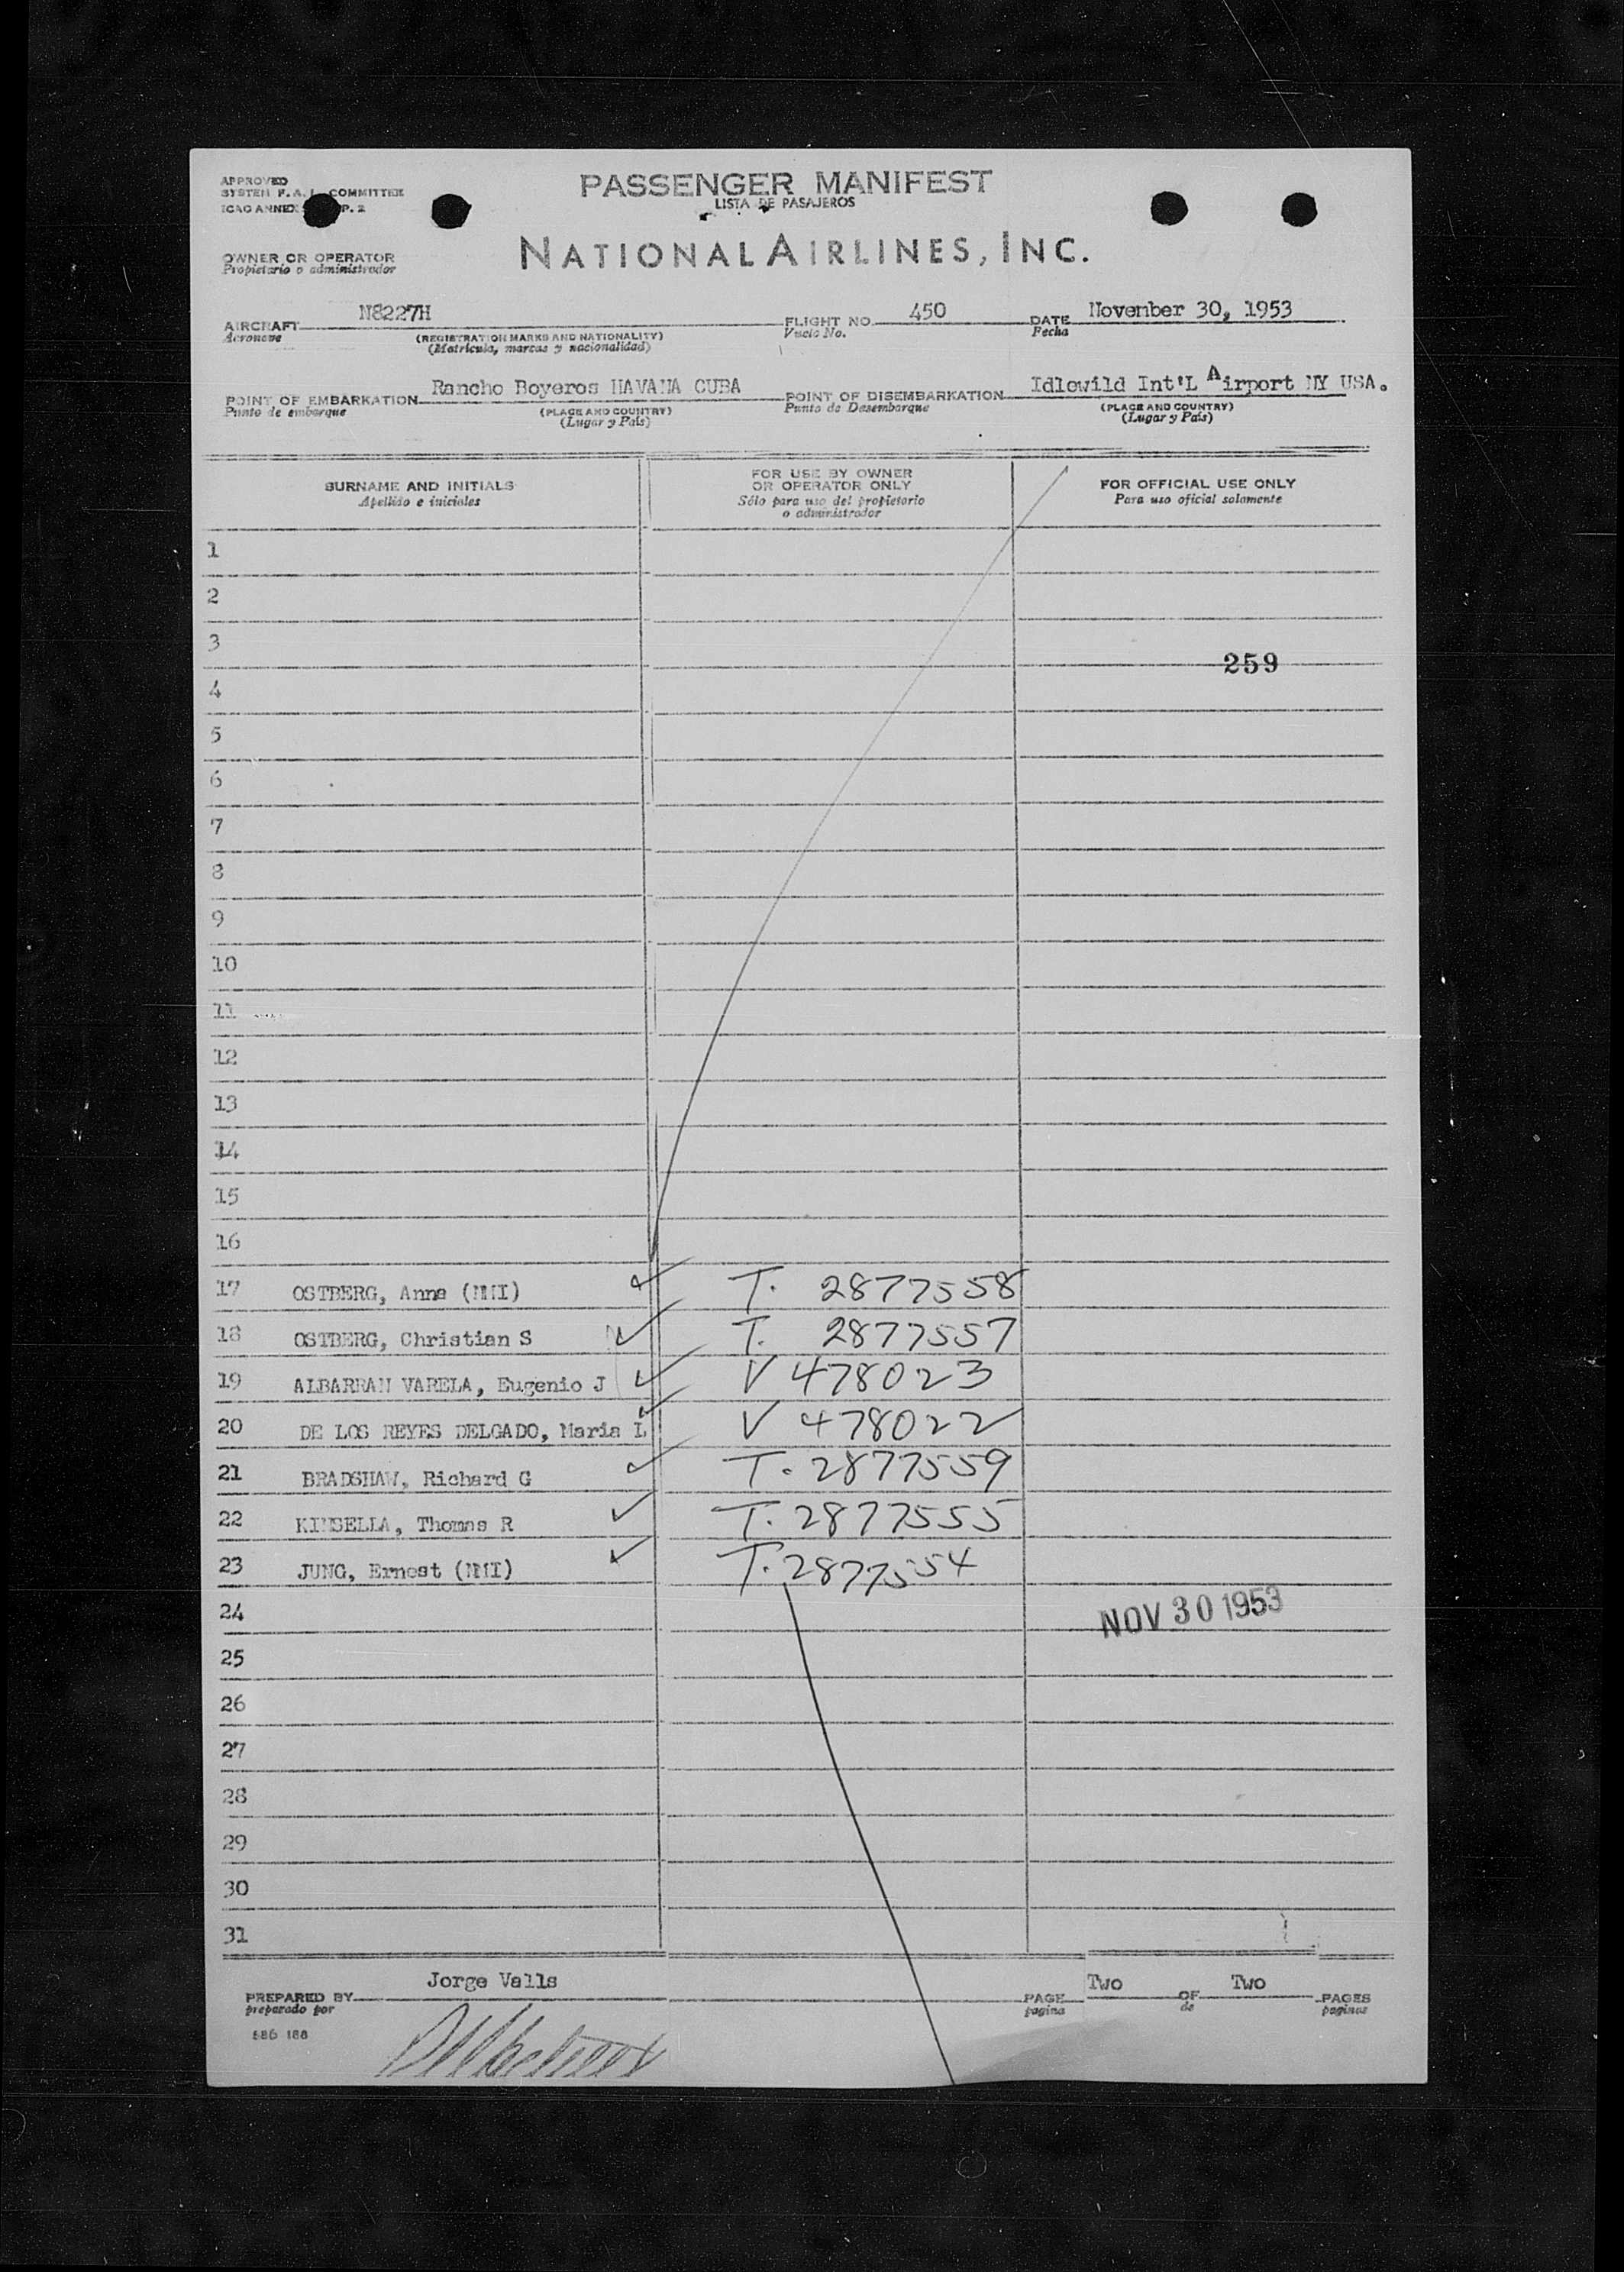 APPROVED
SYSTEM F.A.L. COMMITTEE
ICAO ANNEX P. 2
PASSENGER MANIFEST
LISTA DE PASAJEROS
NATIONAL AIRLINES, INC.
OWNER OR OPERATOR
Propietario o administrador
AIRCRAFT N8227H FLIGHT NO. 450 DATE November 30, 1953
Aeronave (REGISTRATION MARKS AND NATIONALITY) Vuelo No. Fecha
(Matricula, marcas y nacionalidad)
POINT OF EMBARKATION Rancho Boyeros HAVANA CUBA POINT OF DISEMBARKATION Idlewild Int'L Airport NY USA.
Punto de embarque (PLACE AND COUNTRY) Punto de Desembarque (PLACE AND COUNTRY)
(Lugar y País) (Lugar y País)
SURNAME AND INITIALS FOR USE BY OWNER OR OPERATOR ONLY FOR OFFICIAL USE ONLY
Apellido e iniciales Sólo para uso del propietario o administrador Para uso oficial solamente
1
2
3
259
4
5
6
7
8
9
10
11
12
13
14
15
16
17 OSTBERG, Anna (NMI) T. 2877558
18 OSTBERG, Christian S T. 2877557
19 ALBARRAN VARELA, Eugenio J V 478023
20 DE LOS REYES DELGADO, Maria L V 478022
21 BRADSHAW, Richard G T. 2877559
22 KINSELLA, Thomas R T. 2877555
23 JUNG, Ernest (NMI) T. 2877554
24 NOV 30 1953
25
26
27
28
29
30
31
PREPARED BY Jorge Valls PAGE Two OF Two PAGES
preparado por pagina de paginas